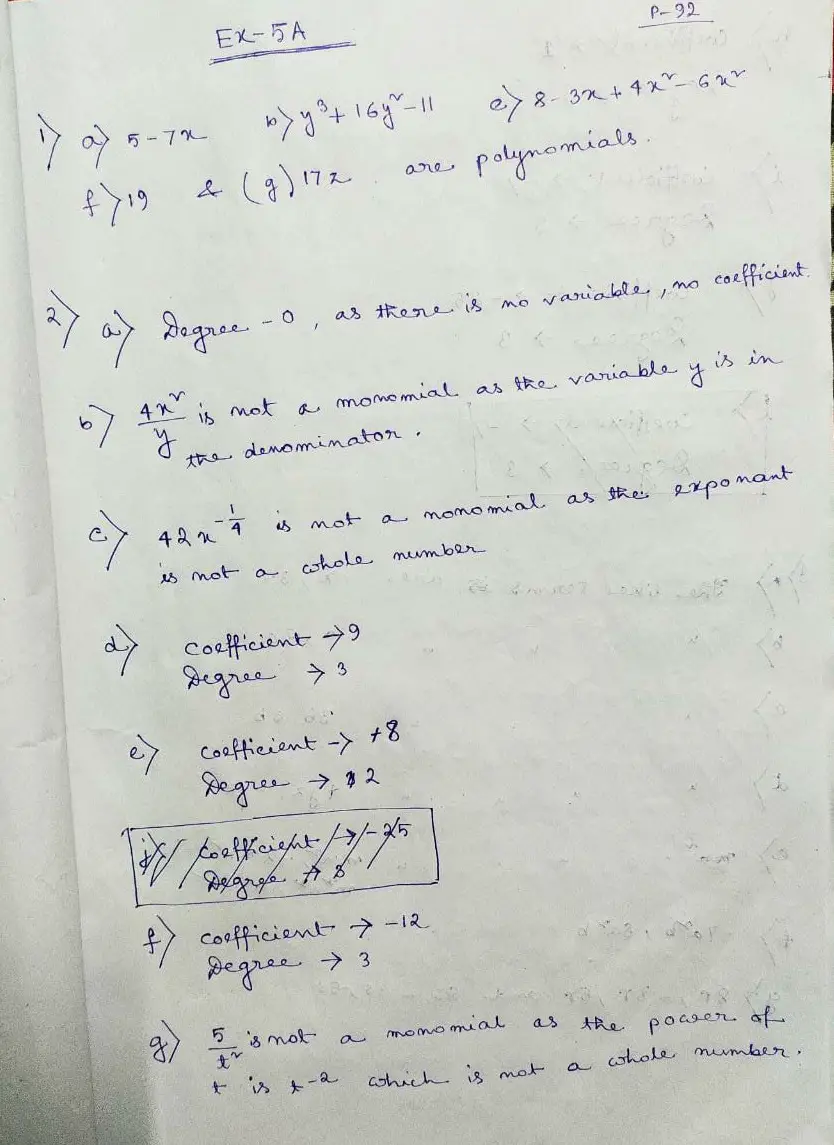 Ex-5A
P-92
1) a) 5-7x b) y³+16y²-11 e) 8-3x+4x²-6x²
f) 19 & (g) 17z are polynomials.
2) a) Degree - 0, as there is no variable, no coefficient.
b) 4x²/y is not a monomial as the variable y is in
the denominator.
c) 42x^-1/4 is not a monomial as the exponant
is not a whole number
d) coefficient → 9
Degree → 3
e) coefficient → +8
Degree → 2
coefficient → -25
Degree → 8
f) coefficient → -12
Degree → 3
g) 5/t² is not a monomial as the power of
t is t⁻² which is not a whole number.